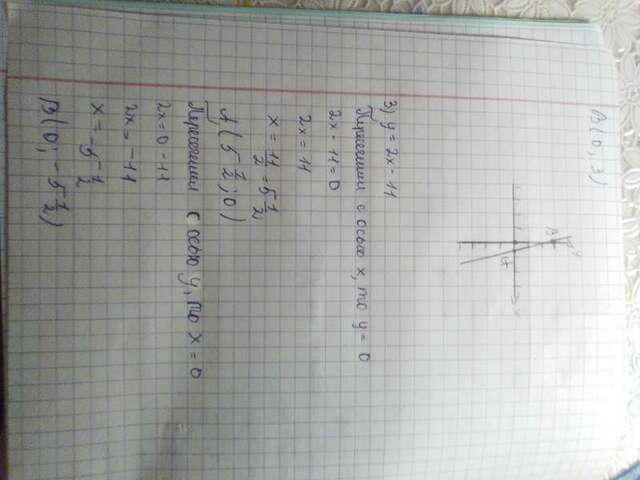 B(0; 3)
y
B
A
x
3) y = 2x - 11
Пересечении с осью x, то y = 0
2x - 11 = 0
2x = 11
x = 11/2 = 5 1/2
A (5 1/2; 0)
Пересечении с осью y, то x = 0
2x = 0 - 11
2x = -11
x = -5 1/2
B(0; -5 1/2)